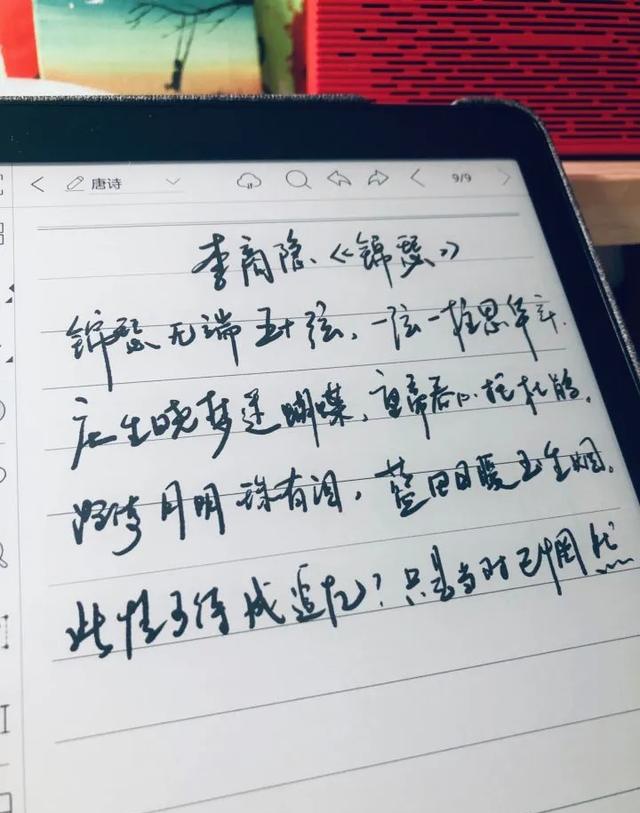 唐诗 9/9
李商隐《锦瑟》
锦瑟无端五十弦，一弦一柱思华年.
庄生晓梦迷蝴蝶，望帝春心托杜鹃.
沧海月明珠有泪，蓝田日暖玉生烟.
此情可待成追忆？只是当时已惘然